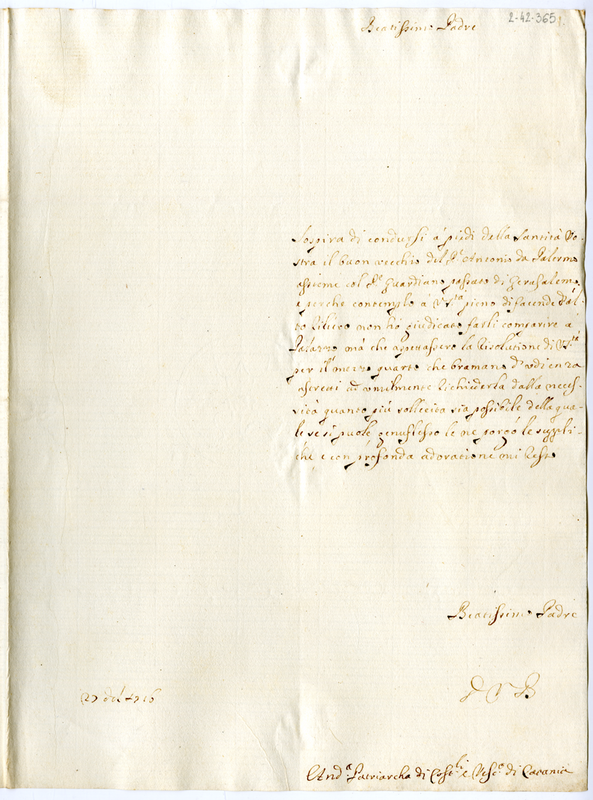 2-42-365
Beatissimo Padre
Sospira di condursi à piedi della Santità Vo-
stra il buon vecchio del P. Antonio da Palermo
assieme col P. Guardiano passato di Gerusalemo,
e perche contemplo à pieno di facende d'al-
to non hò giudicato farli comparire à
Palazzo mà che aspettassero la Risolutione di
per il mezzo quarto che bramano d'udienza
ad umilmente Richiederla dalla neces-
sità quanto più sollecita sia possibile della qua-
le se si puole, genuflesso le ne porgo le suppli-
che e con profonda adoratione mi Resto
Beatissimo Padre
D V B
27
And.ª Patriarcha di Cost.li e Vesc.º di Catania